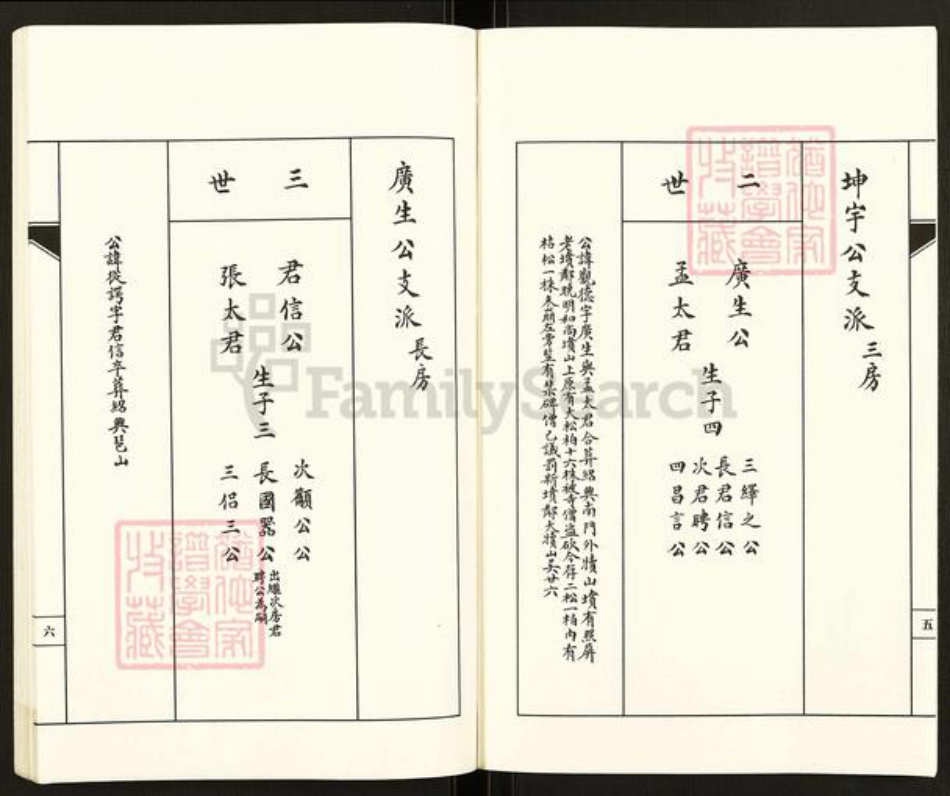 坤宇公支派 三房
二世
廣生公
孟太君
生子四
三繹之公
長君信公
次君聘公
四昌言公
公諱觀德字廣生與孟太君合葬紹興南門外犢山墳有照屏
老墳鄰曉明和尚墳山上原有大松柏十六株被寺僧盜砍今存二松一柏內有
枯松一株
五
廣生公支派 長房
三世
君信公
張太君
生子三
次顓公公
長國器公 出繼次房君聘公為嗣
三侶三公
公諱從諤字君信卒葬紹興琶山
六
FamilySearch